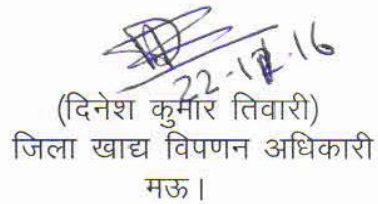 22.12.16
(दिनेश कुमार तिवारी)
जिला खाद्य विपणन अधिकारी
मऊ।